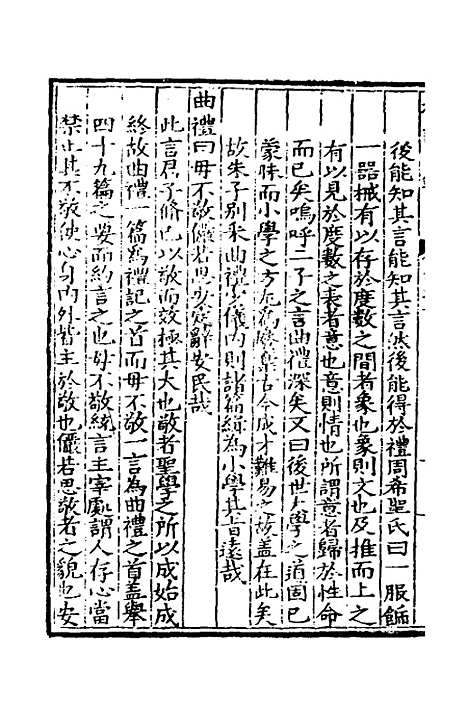 後能知其言能知其言然後能得於禮周希聖氏曰一服餙
一器械有以存於度數之間者象也象則文也及推而上之
有以見於度數之表者意也意則情也所謂意者歸於性命
而已矣嗚呼二子之言曲禮深矣又曰後世大學之道固已
蒙昧而小學之方尤為廢棄古今成才難易之故盖在此矣
故朱子别采曲禮少儀内則諸篇緝為小學其旨遠哉
曲禮曰毋不敬儼若思安定辭安民哉
此言君子脩己以敬而效極其大也敬者聖學之所以成始成
終故曲禮一篇為禮記之首而毋不敬一言為曲禮之首盖舉
四十九篇之要而約言之也毋不敬統言主宰處謂人存心當
禁止其不敬使心身内外皆主於敬也儼若思敬者之貌也安